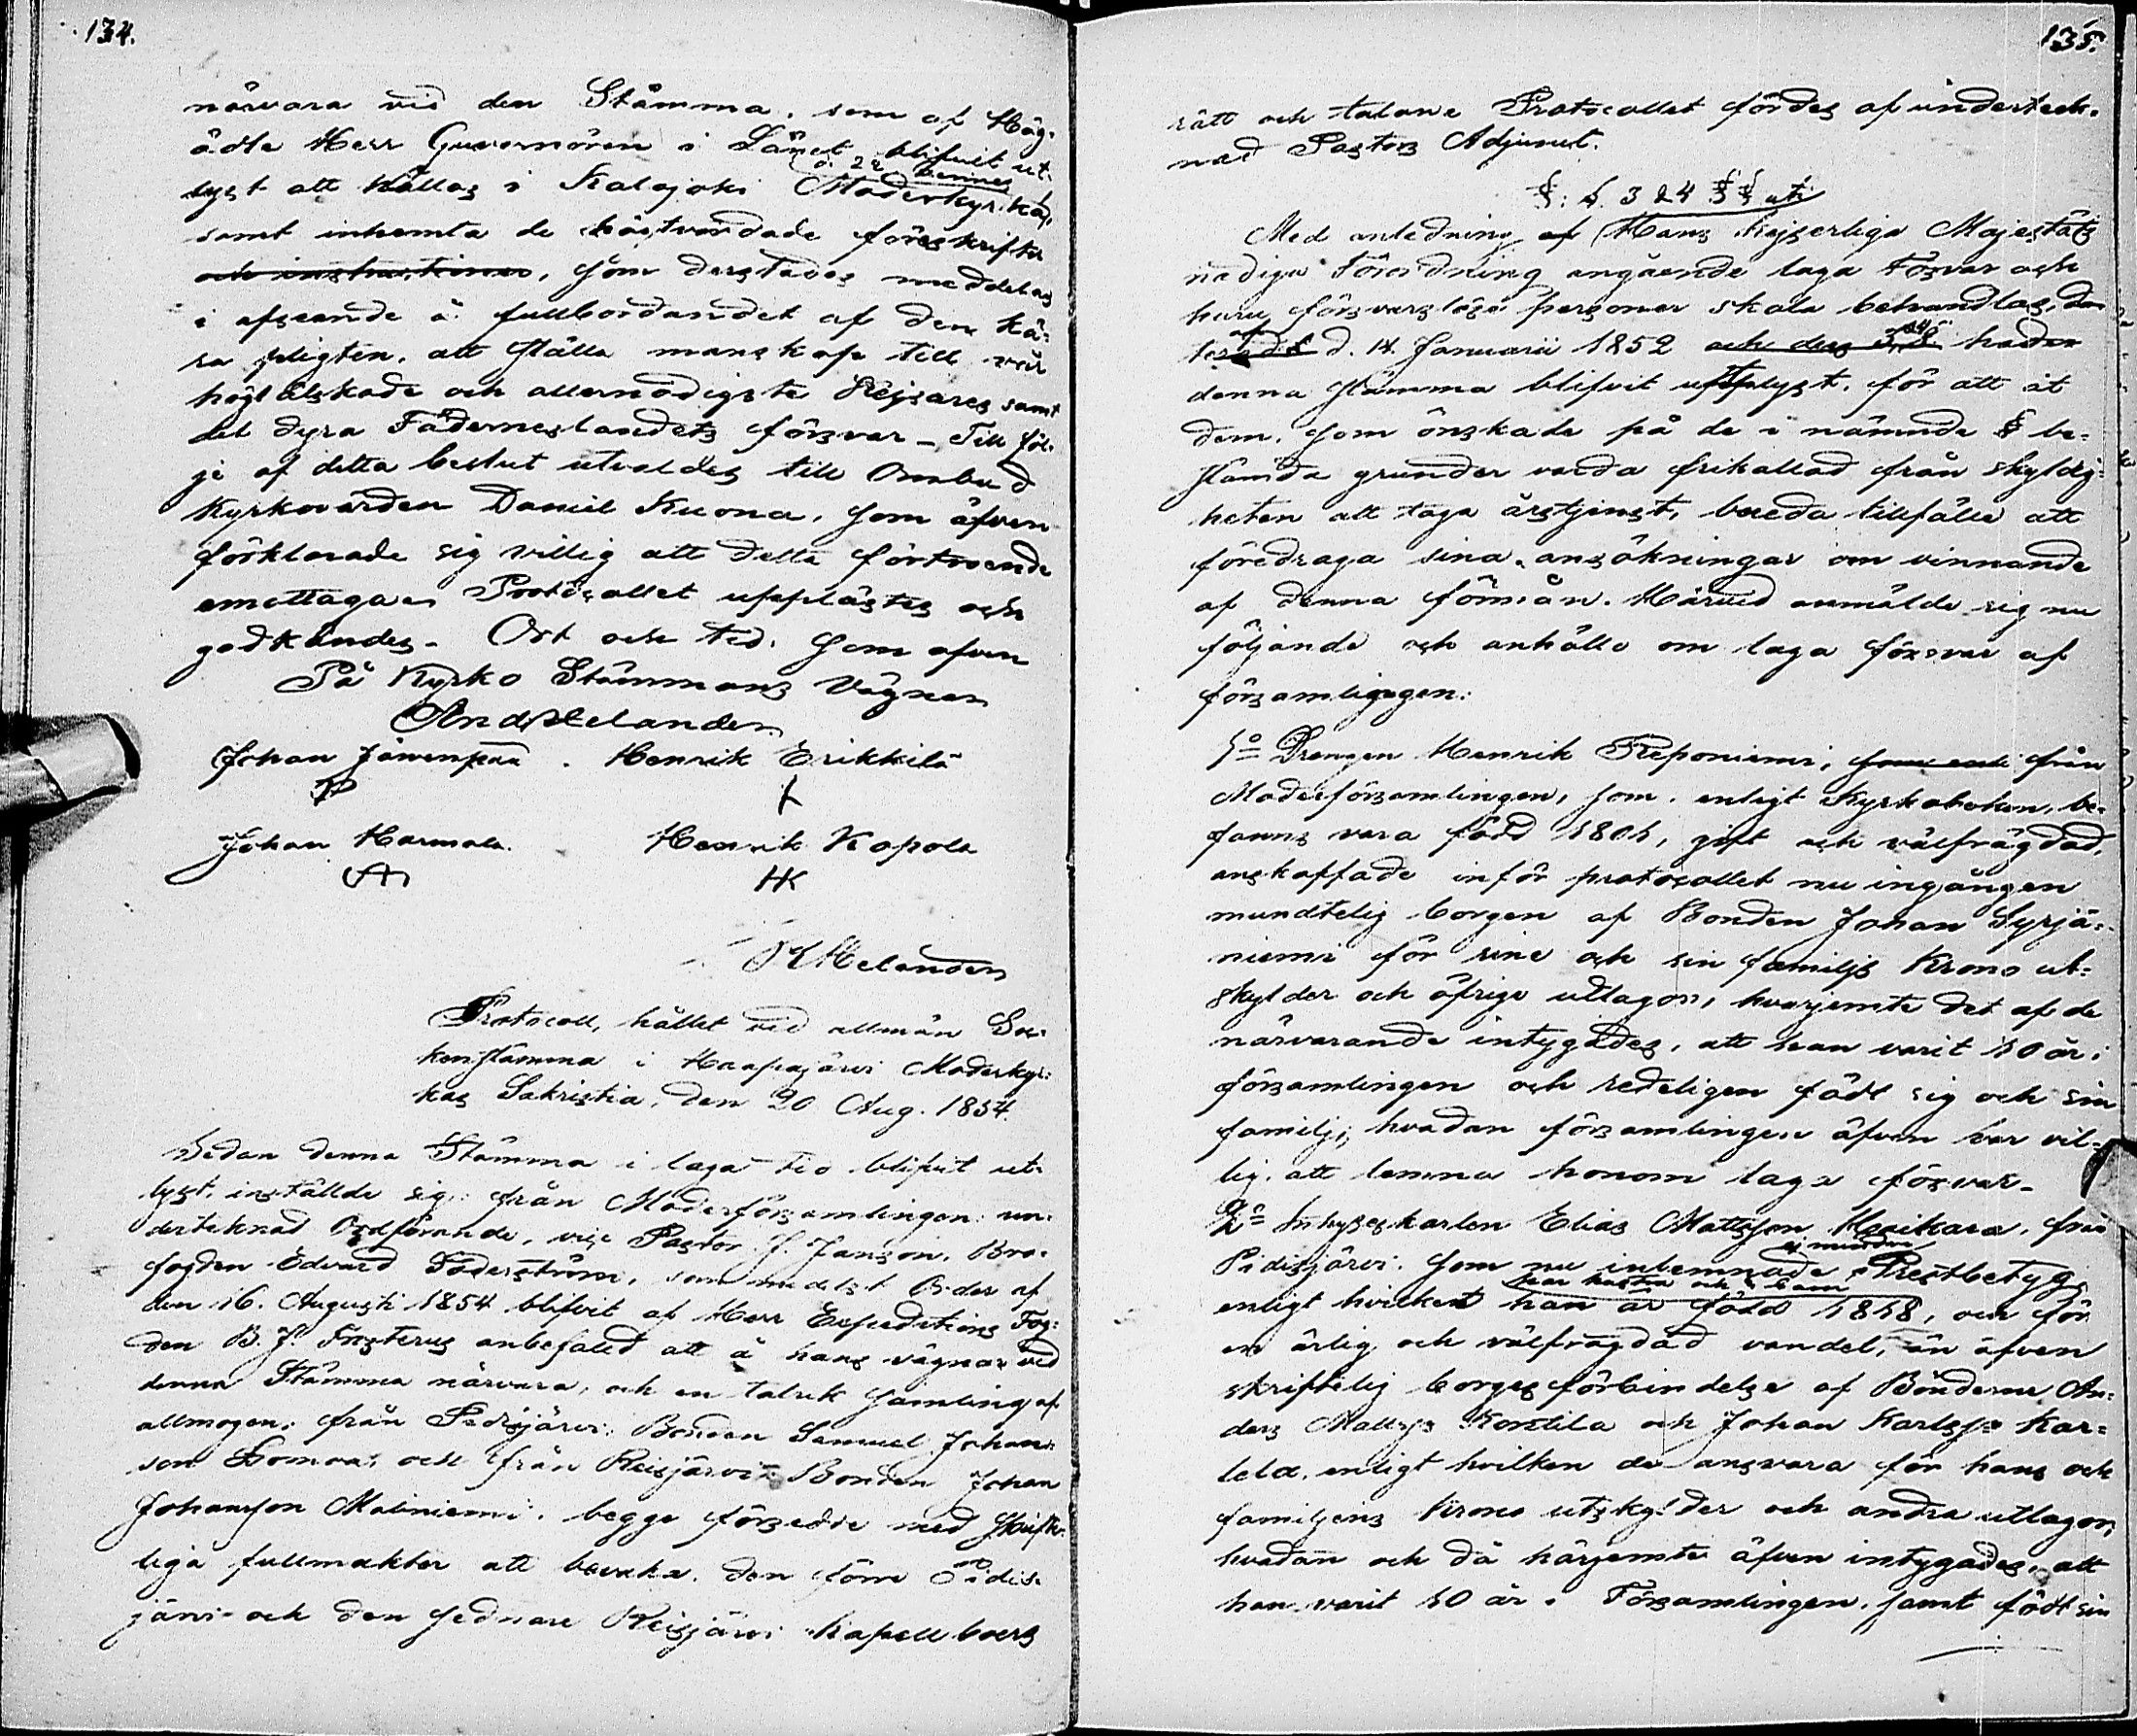 134.
närvara vid den Stämma, som af Hög-
ädle Herr Guvernören i Länet blifvit ut-
å 22 dennes
lyst att hållas i Kalajoki Moderkyrka,
samt inhemta de högtvordade föreskrifter
och instructioner, som derstädes meddelas
i afseende å fullbordandet af den kä-
ra pligten, att ställa manskap till vår
högtälskade och allernådigste Kejsares samt
det dyra Fäderneslandets försvar - Till föl-
je af detta beslut utvaldes till Ombud
Kyrkovärden Daniel Kuona, som äfven
förklarade sig villig att detta förtroende
emottaga. Protocollet upplästes och
godkändes. Ort och tid. som ofvan
På Kyrko Stämmans Vägnar
And Helander
Johan Järvenpää . Henrik Erikkilä
Johan Harmala Henrik Kopola
HK
Helander
Protocoll, hållet vid allmän Soc-
kenstämma i Haapajärvi Moderkyr-
kas Sakristia, den 20 Aug. 1854.
Sedan denna Stämma i laga tid blifvit ut-
lyst, inställde sig: från Moderförsamlingen: un-
dertecknad Ordförande, vice Pastor J. Janson, Bro-
fogden Edvard Söderström, som medelst Order af
den 16. Augusti 1854 blifvit af Herr Expeditions Fog-
den B. J. Frosterus anbefaled att å hans vägnar vid
denna Stämma närvara, och en talrik samling af
allmogen; från Pidisjärvi: Bonden Samuel Johans-
son Somoa; och från Reisjärvi: Bonden Johan
Johansson Maliniemi; begge försedde med skrift-
liga fullmakter att bevaka, den förre Pidis-
järvi- och den sednare Reisjärvi Kapellboers
135.
rätt och talan. Protocollet fördes af underteck-
nad Pastors Adjunct.
§. 1. 3 & 4 §§ uti
Med anledning af Hans Kejserliga Majestäts
nådiga Förordning angående laga försvar och
huru försvarslösa personer skola behandlas, da-
terad d. 14 Januarii 1852 och dess 3 § hade
denna stämma blifvit utlyst, för att åt
dem, som önskade på de i nämnde § be-
stämda grunder varda frikallad från skyldig-
heten att taga årstjenst, bereda tillfälle att
föredraga sina ansökningar om vinnande
af denna förmån. Härvid anmälde sig nu
följande och anhöllo om laga försvar af
församlingen:
1o Drengen Henrik Reponiemi, från
Moderförsamlingen, som, enligt Kyrkoboken, be-
fanns vara född 1801, gift och välfrägdad,
anskaffade inför protocollet nu ingången
mundtelig borgen af Bonden Johan Syrjä-
niemi för sine och sin familjs Krono ut-
skylder och öfrige utlagor, hvarjemte det af de
närvarande intygades, att han varit 10 år i
församlingen och redeligen födt sig och sin
familj; hvadan församlingen äfven var vil-
lig att lemna honom laga försvar.
2o Inhyseskarlen Elias Mattsson Merikara, från
Pidisjärvi, som nu inlemnade Prestbetyg,
enligt hvilket han är född 1818, har hustru och barn och för
en ärlig och välfrägdad vandel, än äfven
skriftelig borgesförbindelse af Bönderne An-
ders Mattss. Konttila och Johan Karlss. Kar-
lela, enligt hvilken de ansvara för hans och
familjens Krono utskylder och andra utlagor;
hvadan och då härjemte äfven intygades, att
han varit 10 år i Församlingen, samt födt sin